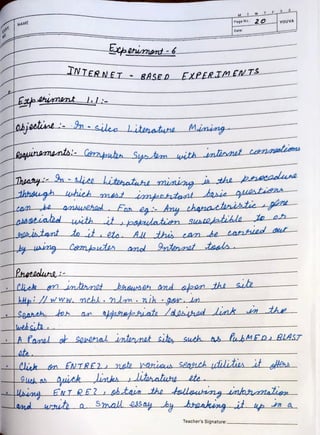 NAME
M T W T F S S
Page No.: 20
YOUVA
Date:
Experiment - 6
INTERNET - BASED EXPERIMENTS
Experiment 1.1 :-
Objective :- In - silco Literature Mining.
Requirements:- Computer System with internet connections
Theory:- In - slice Literature mining is the procedure
through which most important basic questions
can be answered. For eg:- Any characteristic, gene
associated with it, population susceptible to or
resistant to it, etc. All this can be carried out
by using Computer and Internet tools.
Procedure :-
Click on internet browser and open the site
http: // www. ncbl. nlm. nih . gov. in
Search for an appropriate / desired link in the
website.
A Panel of several internet sites such as PubMED, BLAST
etc.
Click on ENTREZ, note various search utilities it offers
Such as quick links, literature etc.
Using ENTREZ, obtain the following information
and write a small essay by breaking it up in a
Teacher's Signature: